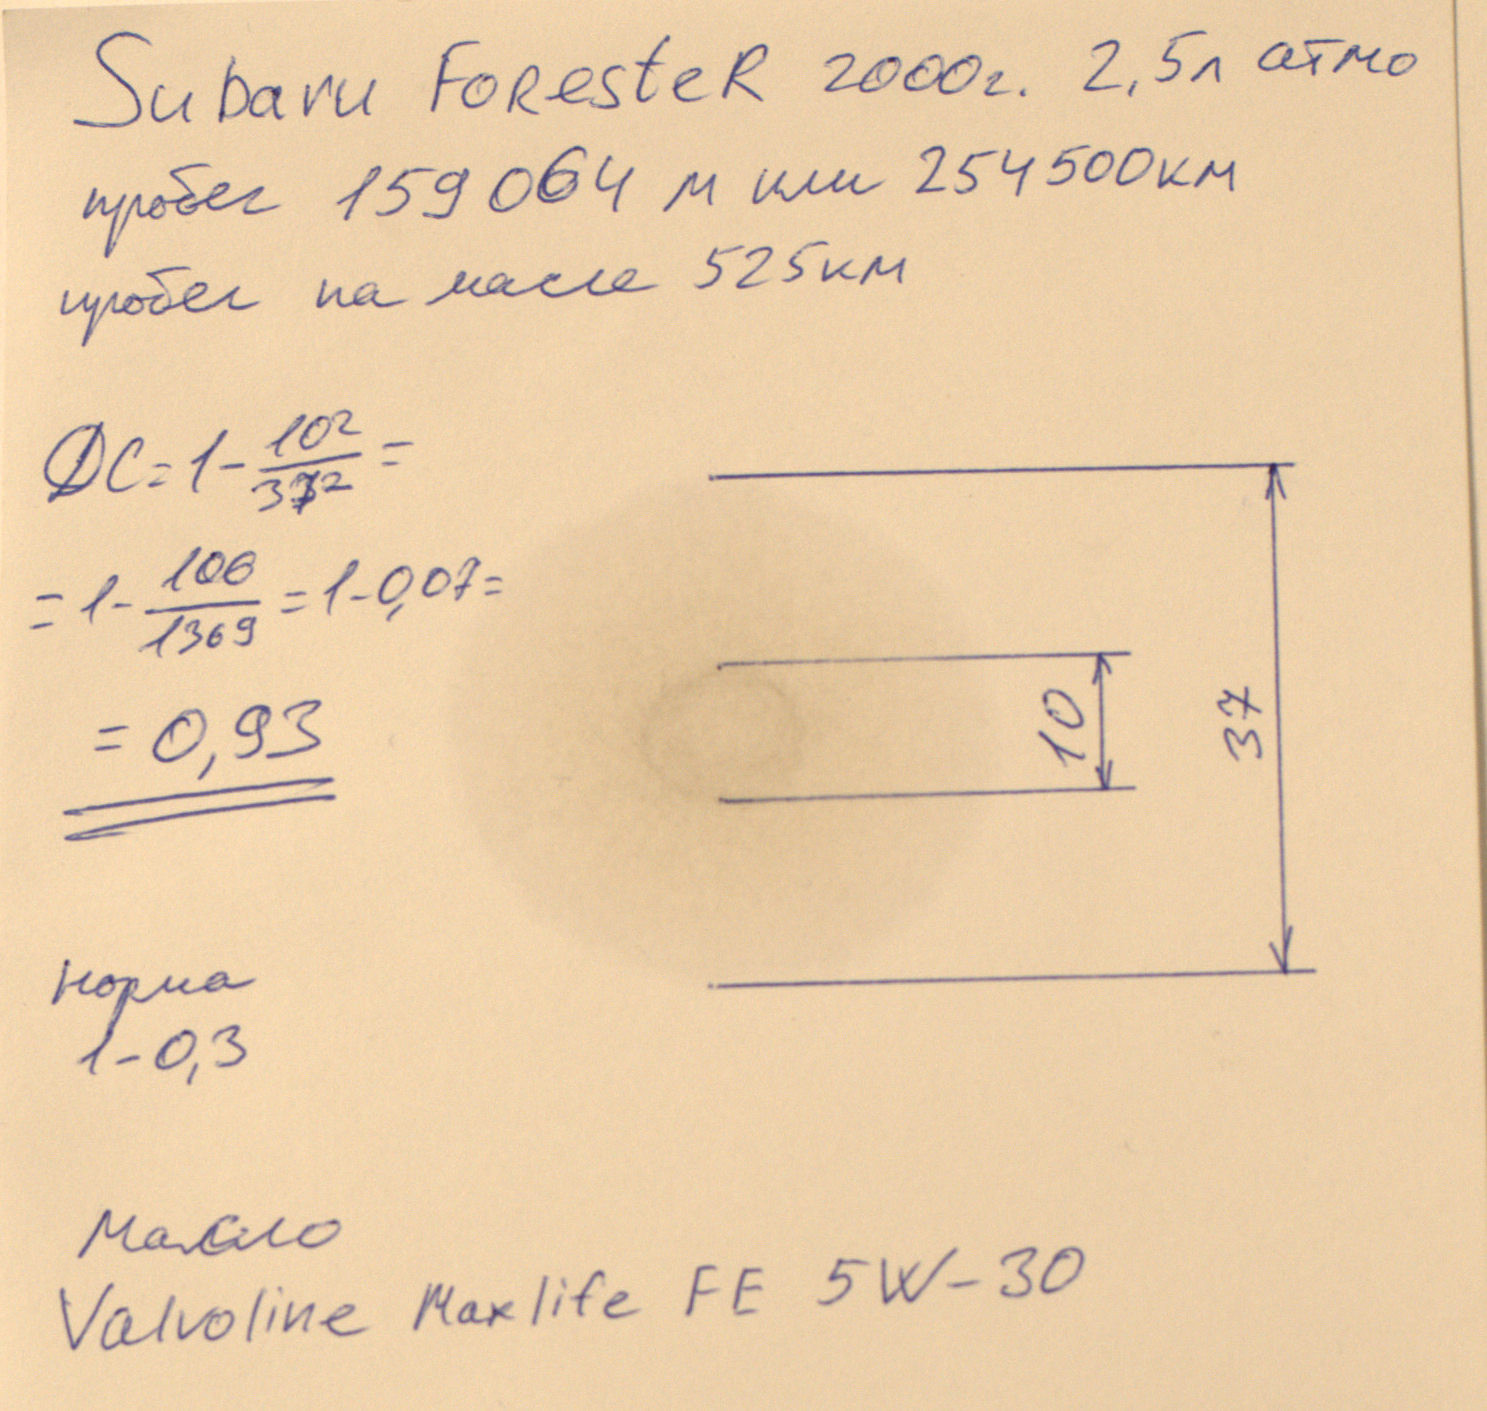 Subaru ForesteR 2000г. 2,5л атмо
пробег 159064 м или 254500км
пробег на масле 525км
ДС = 1 - 10² / 37² =
= 1 - 100 / 1369 = 1 - 0,07 =
= 0,93
10
37
норма
1 - 0,3
Масло
Valvoline Maxlife FE 5W-30